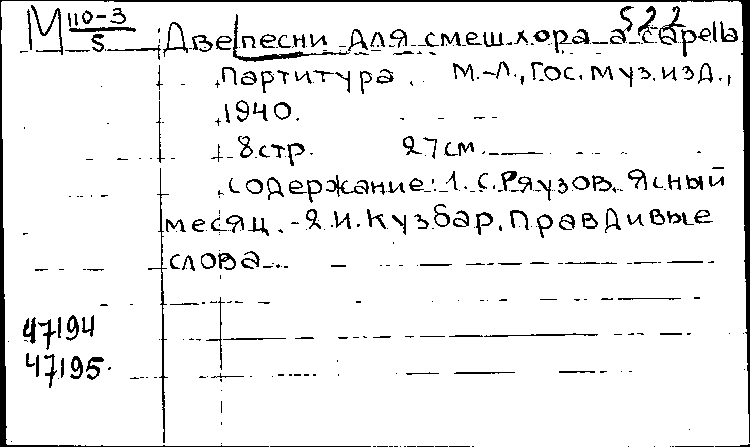 М 110-3/5
522
Две песни для смеш хора a capella
Партитура. М.-Л., Гос. муз. изд.,
1940.
8 стр. 27 см.
Содержание: 1. С. Ряузов. Ясный
месяц. - 2. И. Кузбар. Правдивые
слова.
47194
47195.